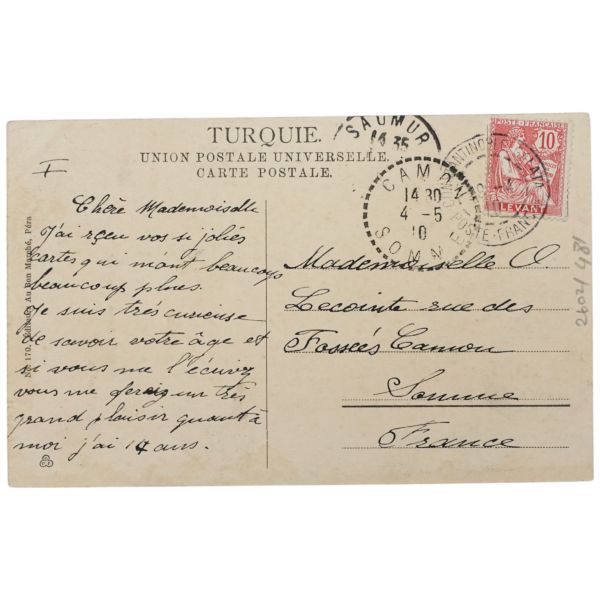 TURQUIE.
UNION POSTALE UNIVERSELLE.
CARTE POSTALE.
I
Chère Mademoiselle
J'ai rçeu vos si jolies
cartes qui m'ont beaucoup
beaucoup plues.
Je suis très curieuse
de savoir votre âge et
si vous me l'écrivez
vous me ferez un très
grand plaisir quant à
moi j'ai 14 ans.
No. 170. Editeurs Au Bon Marché, Péra
SAUMUR
14 35
CAMON
14 30
4 - 5
10
SOMME
POSTE FRANÇAISE
10
LEVANT
GALATA
POSTE FRANC
Mademoiselle O.
Lecointe rue des
Fossées Camon
Somme
France
26021 481